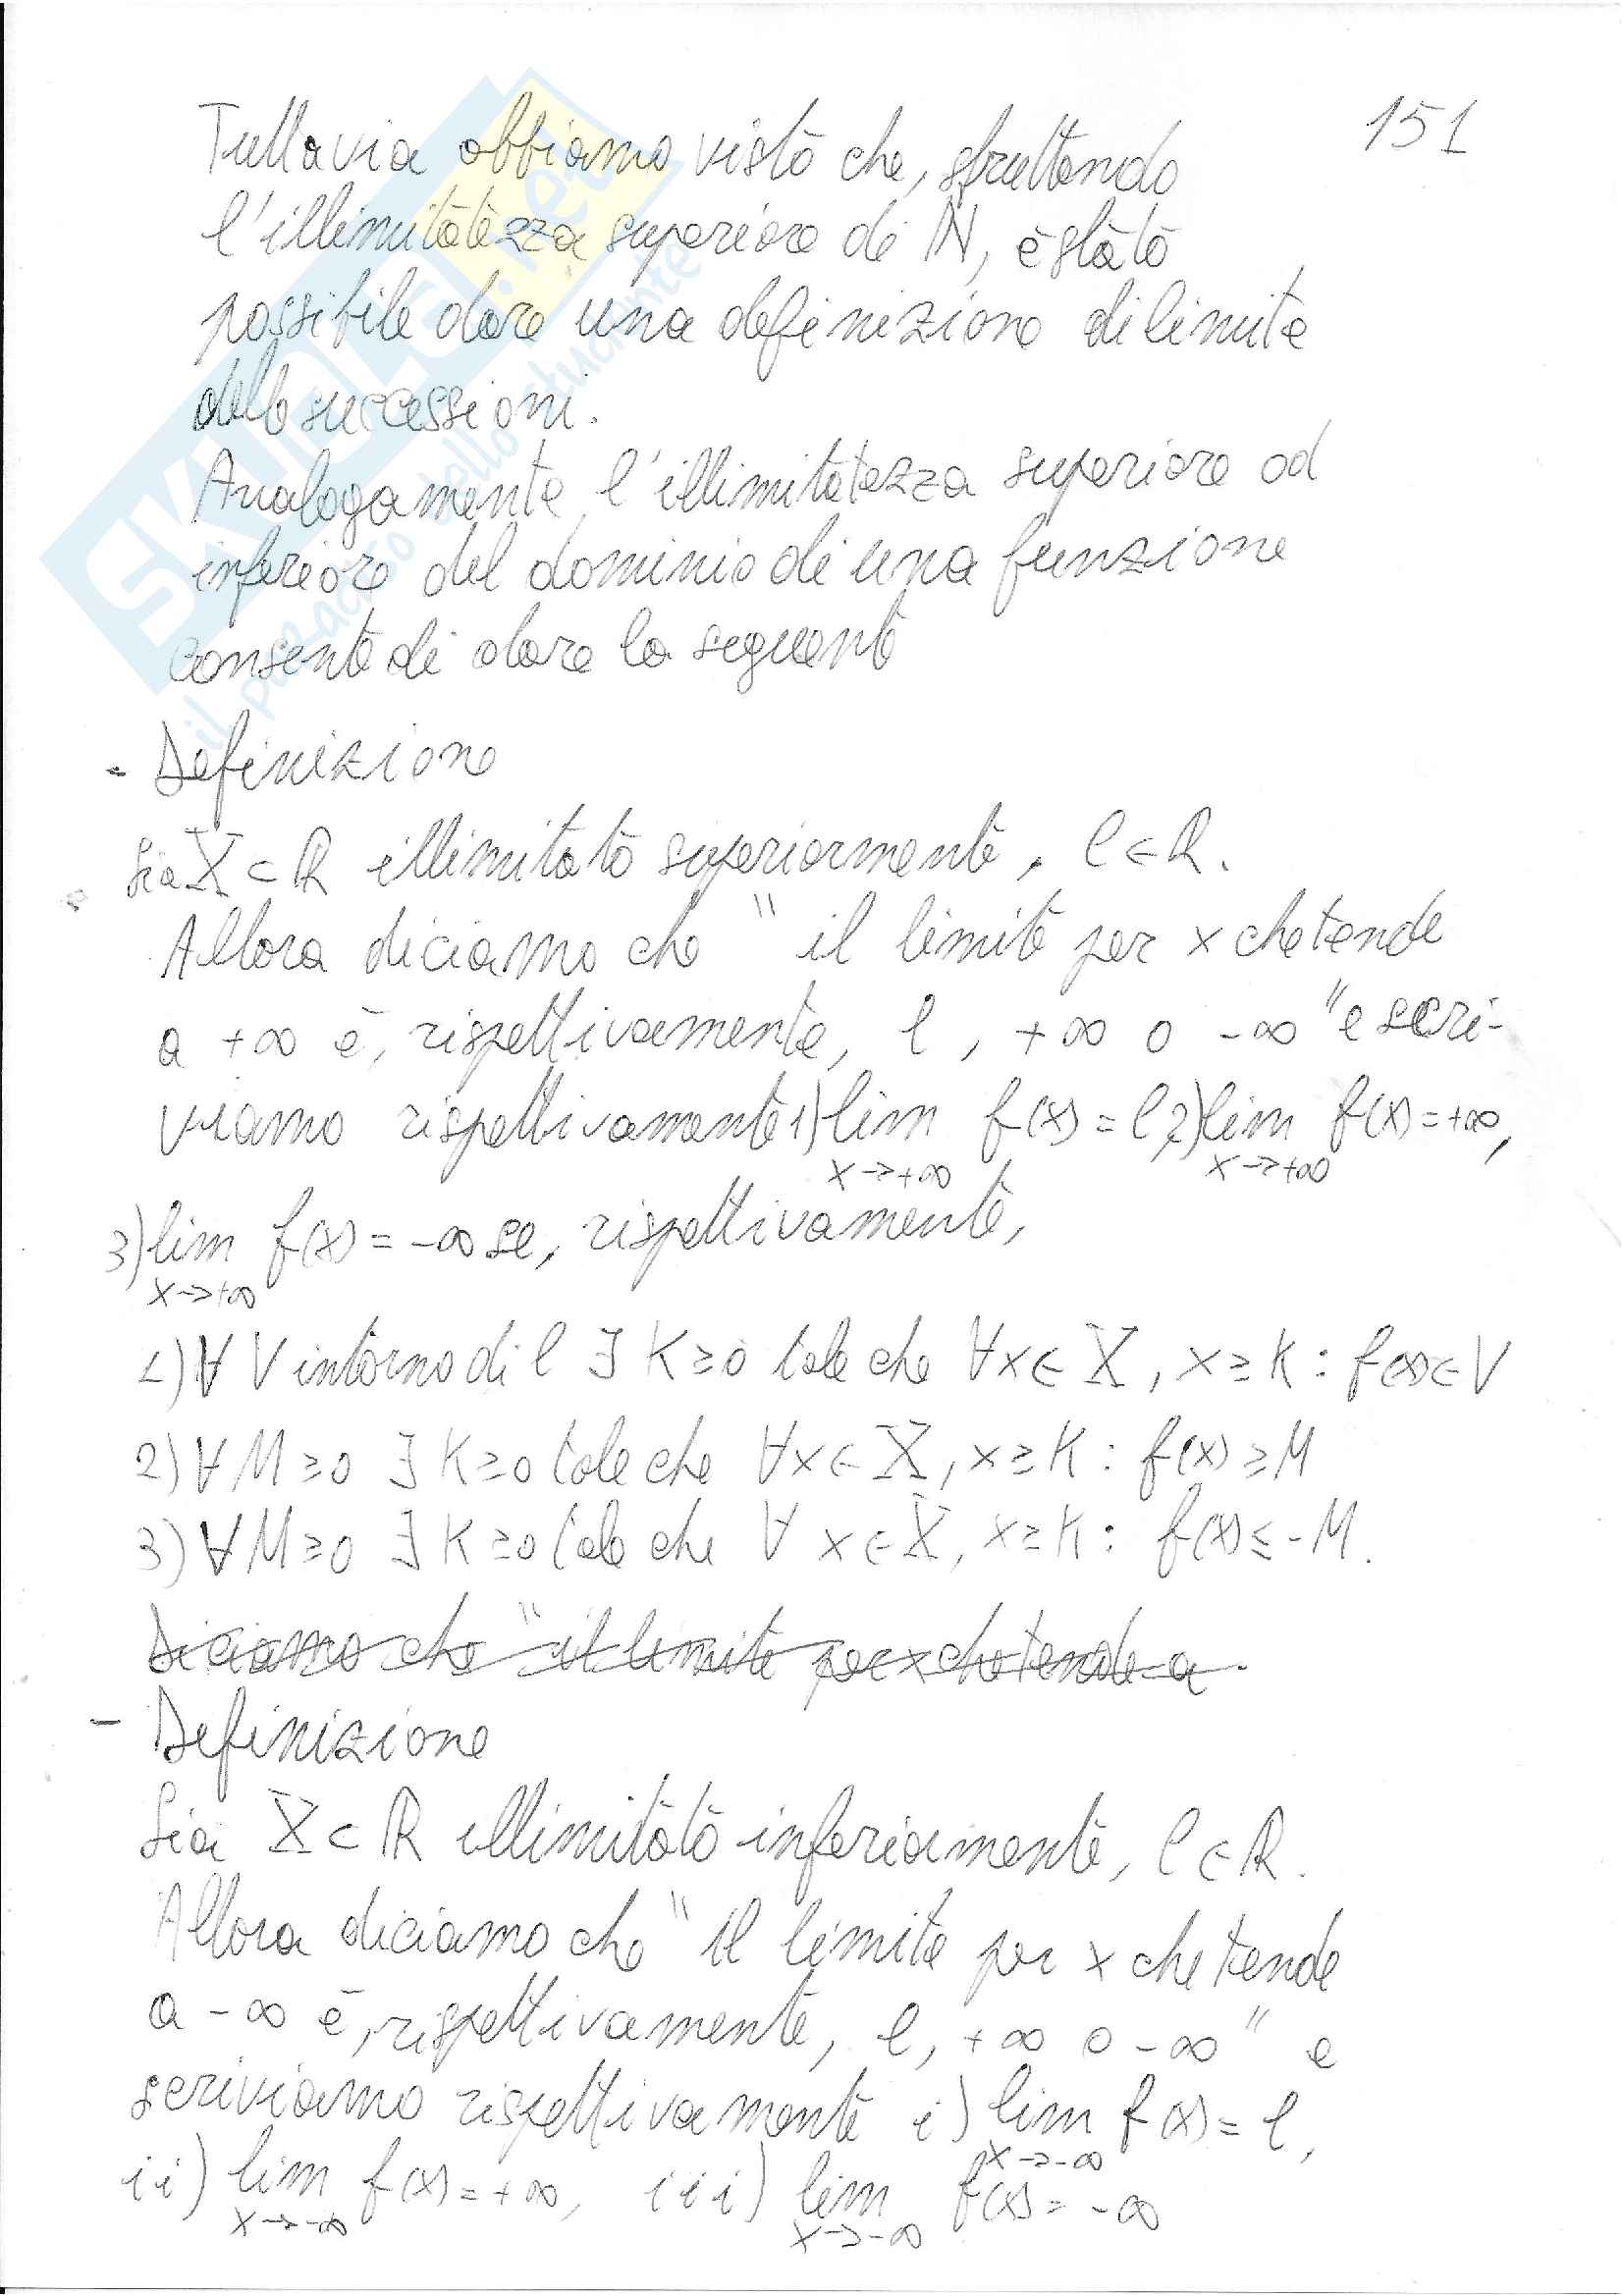 151
Tuttavia abbiamo visto che, sfruttando
l'illimitatezza superiore di ℕ, è stato
possibile dare una definizione di limite
delle successioni.
Analogamente, l'illimitatezza superiore od
inferiore del dominio di una funzione
consente di dare la seguente
- Definizione
Sia X ⊂ ℝ illimitato superiormente, l ∈ ℝ.
Allora diciamo che "il limite per x che tende
a +∞ è, rispettivamente, l, +∞ o -∞" e scri-
viamo rispettivamente 1) lim f(x) = l, 2) lim f(x) = +∞,
x→+∞ x→+∞
3) lim f(x) = -∞ se, rispettivamente,
x→+∞
1) ∀ V intorno di l ∃ K ≥ 0 tale che ∀x ∈ X, x ≥ K : f(x) ∈ V
2) ∀ M ≥ 0 ∃ K ≥ 0 tale che ∀x ∈ X, x ≥ K : f(x) ≥ M
3) ∀ M ≥ 0 ∃ K ≥ 0 tale che ∀ x ∈ X, x ≥ K : f(x) ≤ -M.
Diciamo che "il limite per x che tende a
- Definizione
Sia X ⊂ ℝ illimitato inferiamente, l ∈ ℝ.
Allora diciamo che "il limite per x che tende
a -∞ è, rispettivamente, l, +∞ o -∞" e
scriviamo rispettivamente i) lim f(x) = l,
x→-∞
ii) lim f(x) = +∞, iii) lim f(x) = -∞
x→-∞ x→-∞
SKUOLA.net
il paradiso dello studente